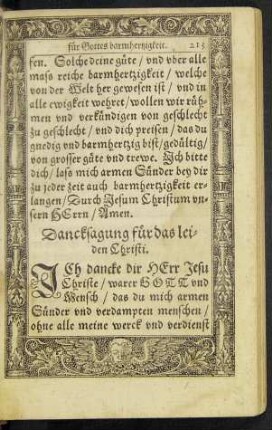 für Gottes barmhertzigkeit. 213
sen. Solche deine güte / vnd vber alle
mass reiche barmhertzigkeit / welche
von der Welt her gewesen ist / vnd in
alle ewigkeit wehret / wollen wir rüh-
men vnd verkündigen von geschlecht
zu geschlecht / vnd dich preisen / das du
gnedig vnd barmhertzig bist / gedültig /
von grosser güte vnd trewe. Ich bitte
dich / lass mich armen Sünder bey dir
zu jeder zeit auch barmhertzigkeit er-
langen / Durch Jesum Christum vn-
sern HErrn / Amen.
Dancksagung für das lei-
den Christi.
ICh dancke dir HErr Jesu
Christe / warer GOTT vnd
Mensch / das du mich armen
Sünder vnd verdampten menschen /
ohne alle meine werck vnd verdienst